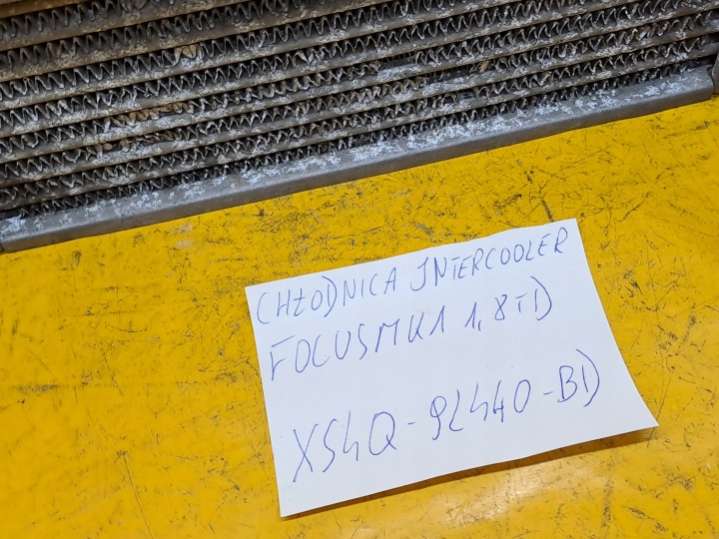 CHŁODNICA INTERCOOLER
FOCUS MK1 1,8 TD
XS4Q-9L440-BD